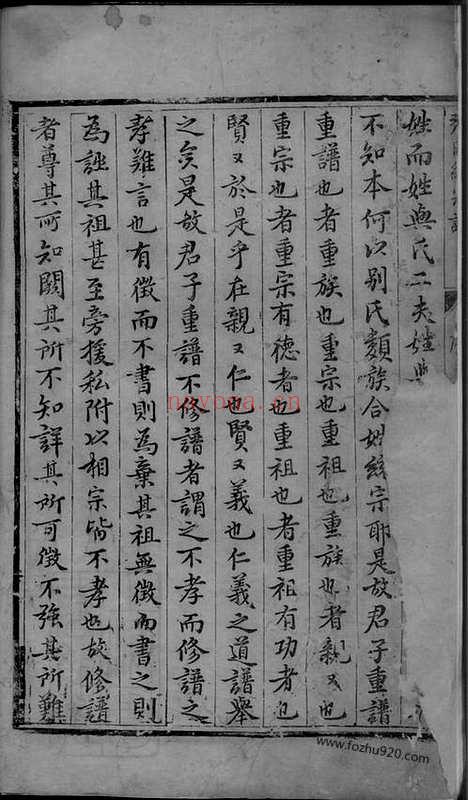 姓而姓與氏二夫姓與
不知本何以别氏類族合姓綂宗耶是故君子重譜
重譜也者重族也重宗也重祖也重族也者親又也
重宗也者重宗有德者也重祖也者重祖有功者也
賢又於是乎在親又仁也賢又義也仁義之道譜舉
之矣是故君子重譜不修譜者謂之不孝而修譜之
孝難言也有徵而不書則為棄其祖無徵而書之則
為誣其祖甚至旁援私附以相宗皆不孝也故修譜
者尊其所知闕其所不知詳其所可徵不强其所難
nayona.cn
www.fozhu920.com